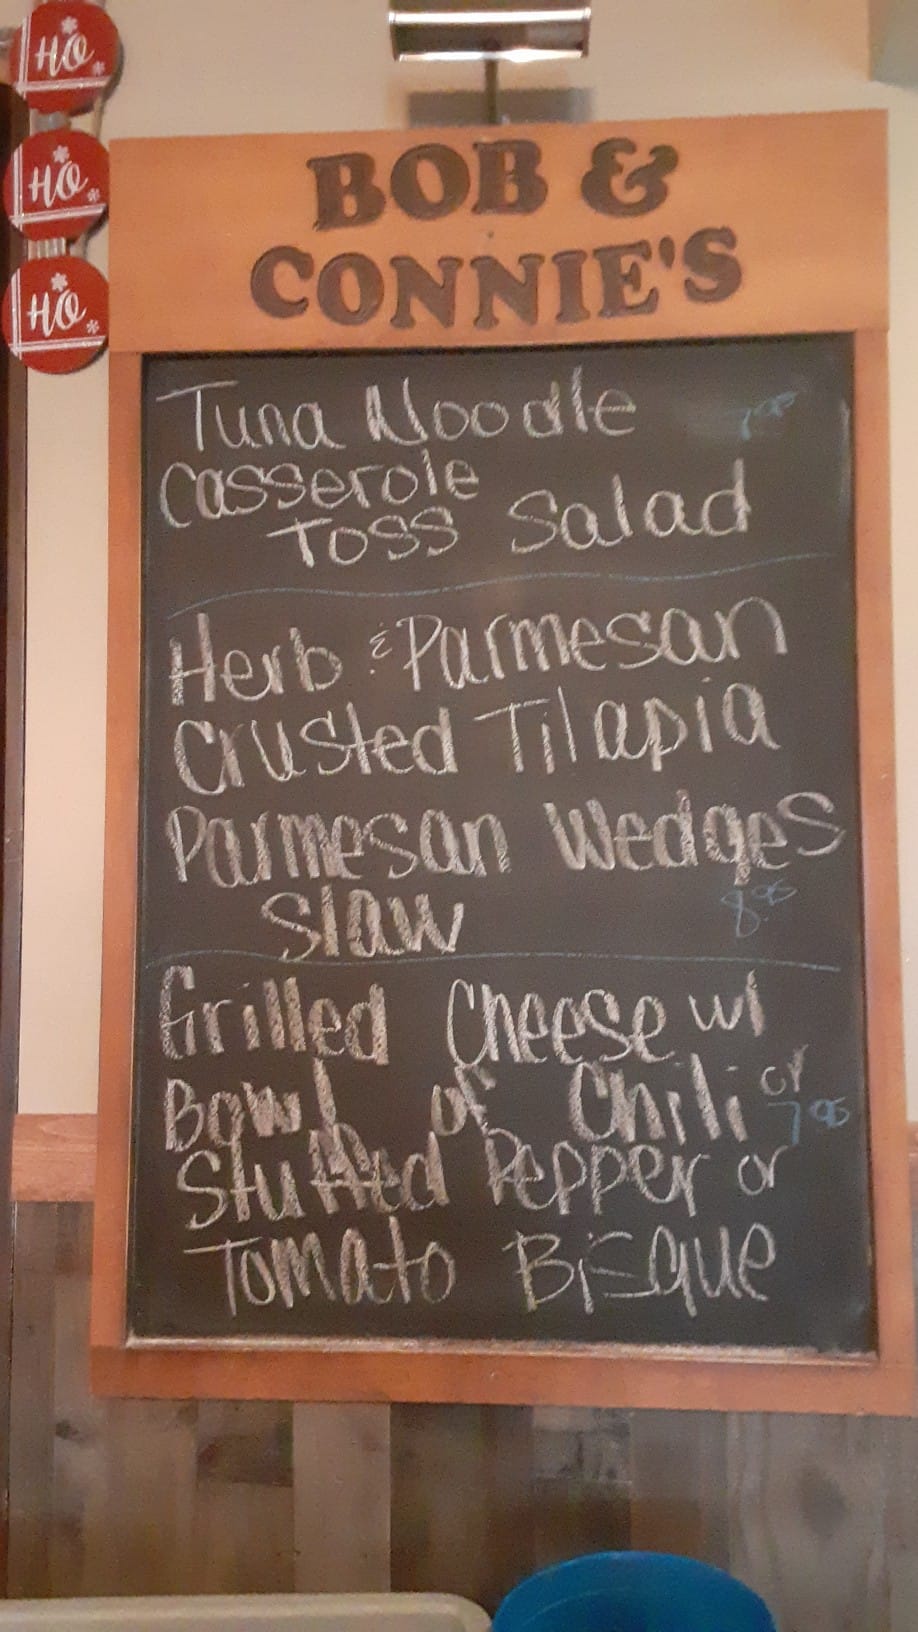 HO
HO
HO
BOB &
CONNIE'S
Tuna Noodle 7.95
Casserole
Toss Salad
Herb & Parmesan
Crusted Tilapia
Parmesan Wedges
Slaw 8.95
Grilled Cheese w/
Bowl of Chili or
7.95
Stuffed Pepper or
Tomato Bisque